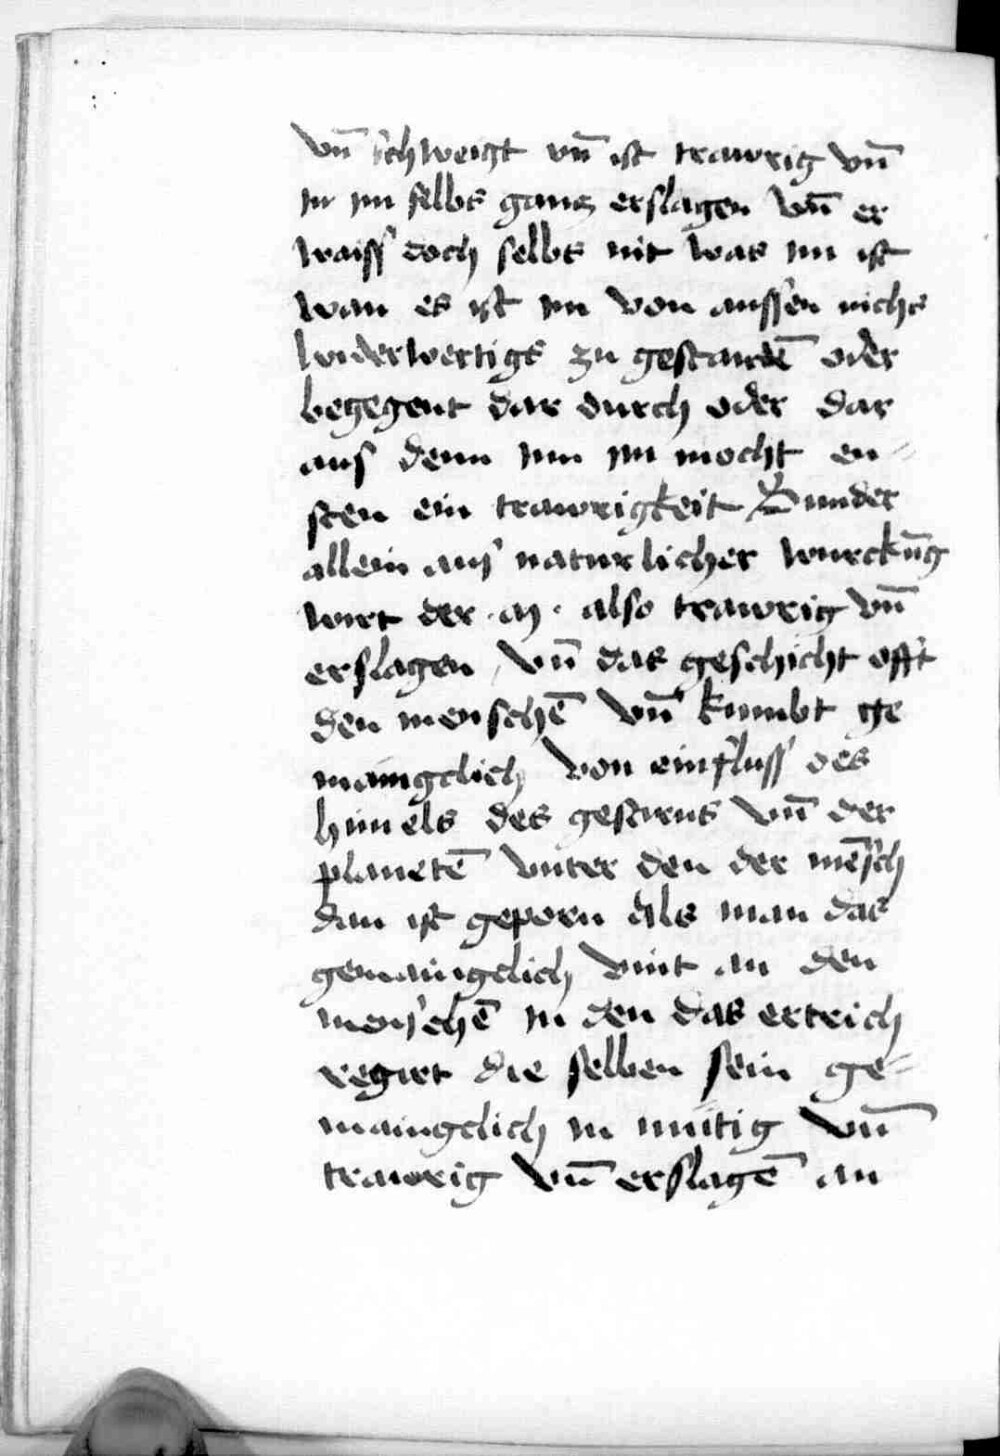 vn̄ schweigt vn̄ ist trawrig vn̄
in im selbs gancz erslagen vn̄ er
waiss doch selbs nit was im ist
wan es ist im von aussen nichs
widerwertigs zu gestandē oder
begegent dar durch oder dar
aus denn nun im mocht en=
sten ein trawrigkeit Sunder
allein aus naturlicher wurckūg
wirt der · m · also trawrig vn̄
erslagen vn̄ das geschicht offt
den menschē vn̄ kumbt ge
maingclich von einfluss des
himels des gestirns vn̄ der
planetē vnter den der mēsch
dan ist geporn Als man das
gemaingclich vint an den
menschē in den das ertrich
regirt die selben sein ge=
maingclich in mütig vn̄
trawrig vn̄ erslagē an